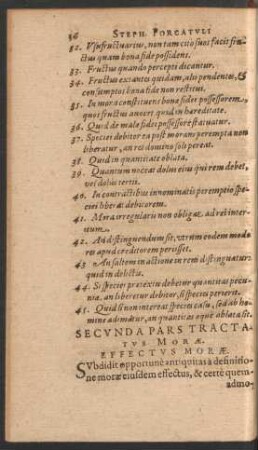 56 STEPH. FORCATVLI
32. Vsufructuarius, non tam citò suos facit fru-
ctus quàm bona fide possidens.
33. Fructus quando percepti dicantur.
34. Fructus extantes quidam, alij pendentes, &
consumptos bona fide non restitui.
35. In mora constituens bonæ fidei possessorem,
quos fructus amittit quid in hæreditate.
36. Quid de malæ fidei possessore statuatur.
37. Speciei debitor ea post moram perempta non
liberatur, an rei domino soli pereat.
38. Quid in quantitate oblata.
39. Quantum noceat dolus eius qui rem debet,
vel dolus tertij.
40. In contractibus innominatis peremptio spe-
ciei liberat debitorem.
41. Mora irregularis non obligat ad rei interi-
tum.
42. An distinguendum sit, vtrùm eodem modo
rem apud creditorem perisset.
43. An saltem in actione in rem distinguatur:
quid in debitis.
44. Si speciei prætextu debetur quantitas pecu-
nia, an liberetur debitor, si species perierit.
45. Quid si non intereat species casu, sed ab ho-
mine adimatur, an quantitas eque oblata sit.
SECVNDA PARS TRACTA-
TVS MORÆ.
EFFECTVS MORÆ.
SVbdidit opportunè antiquitas à definitio-
ne moræ eiusdem effectus, & certè quem-
admo-